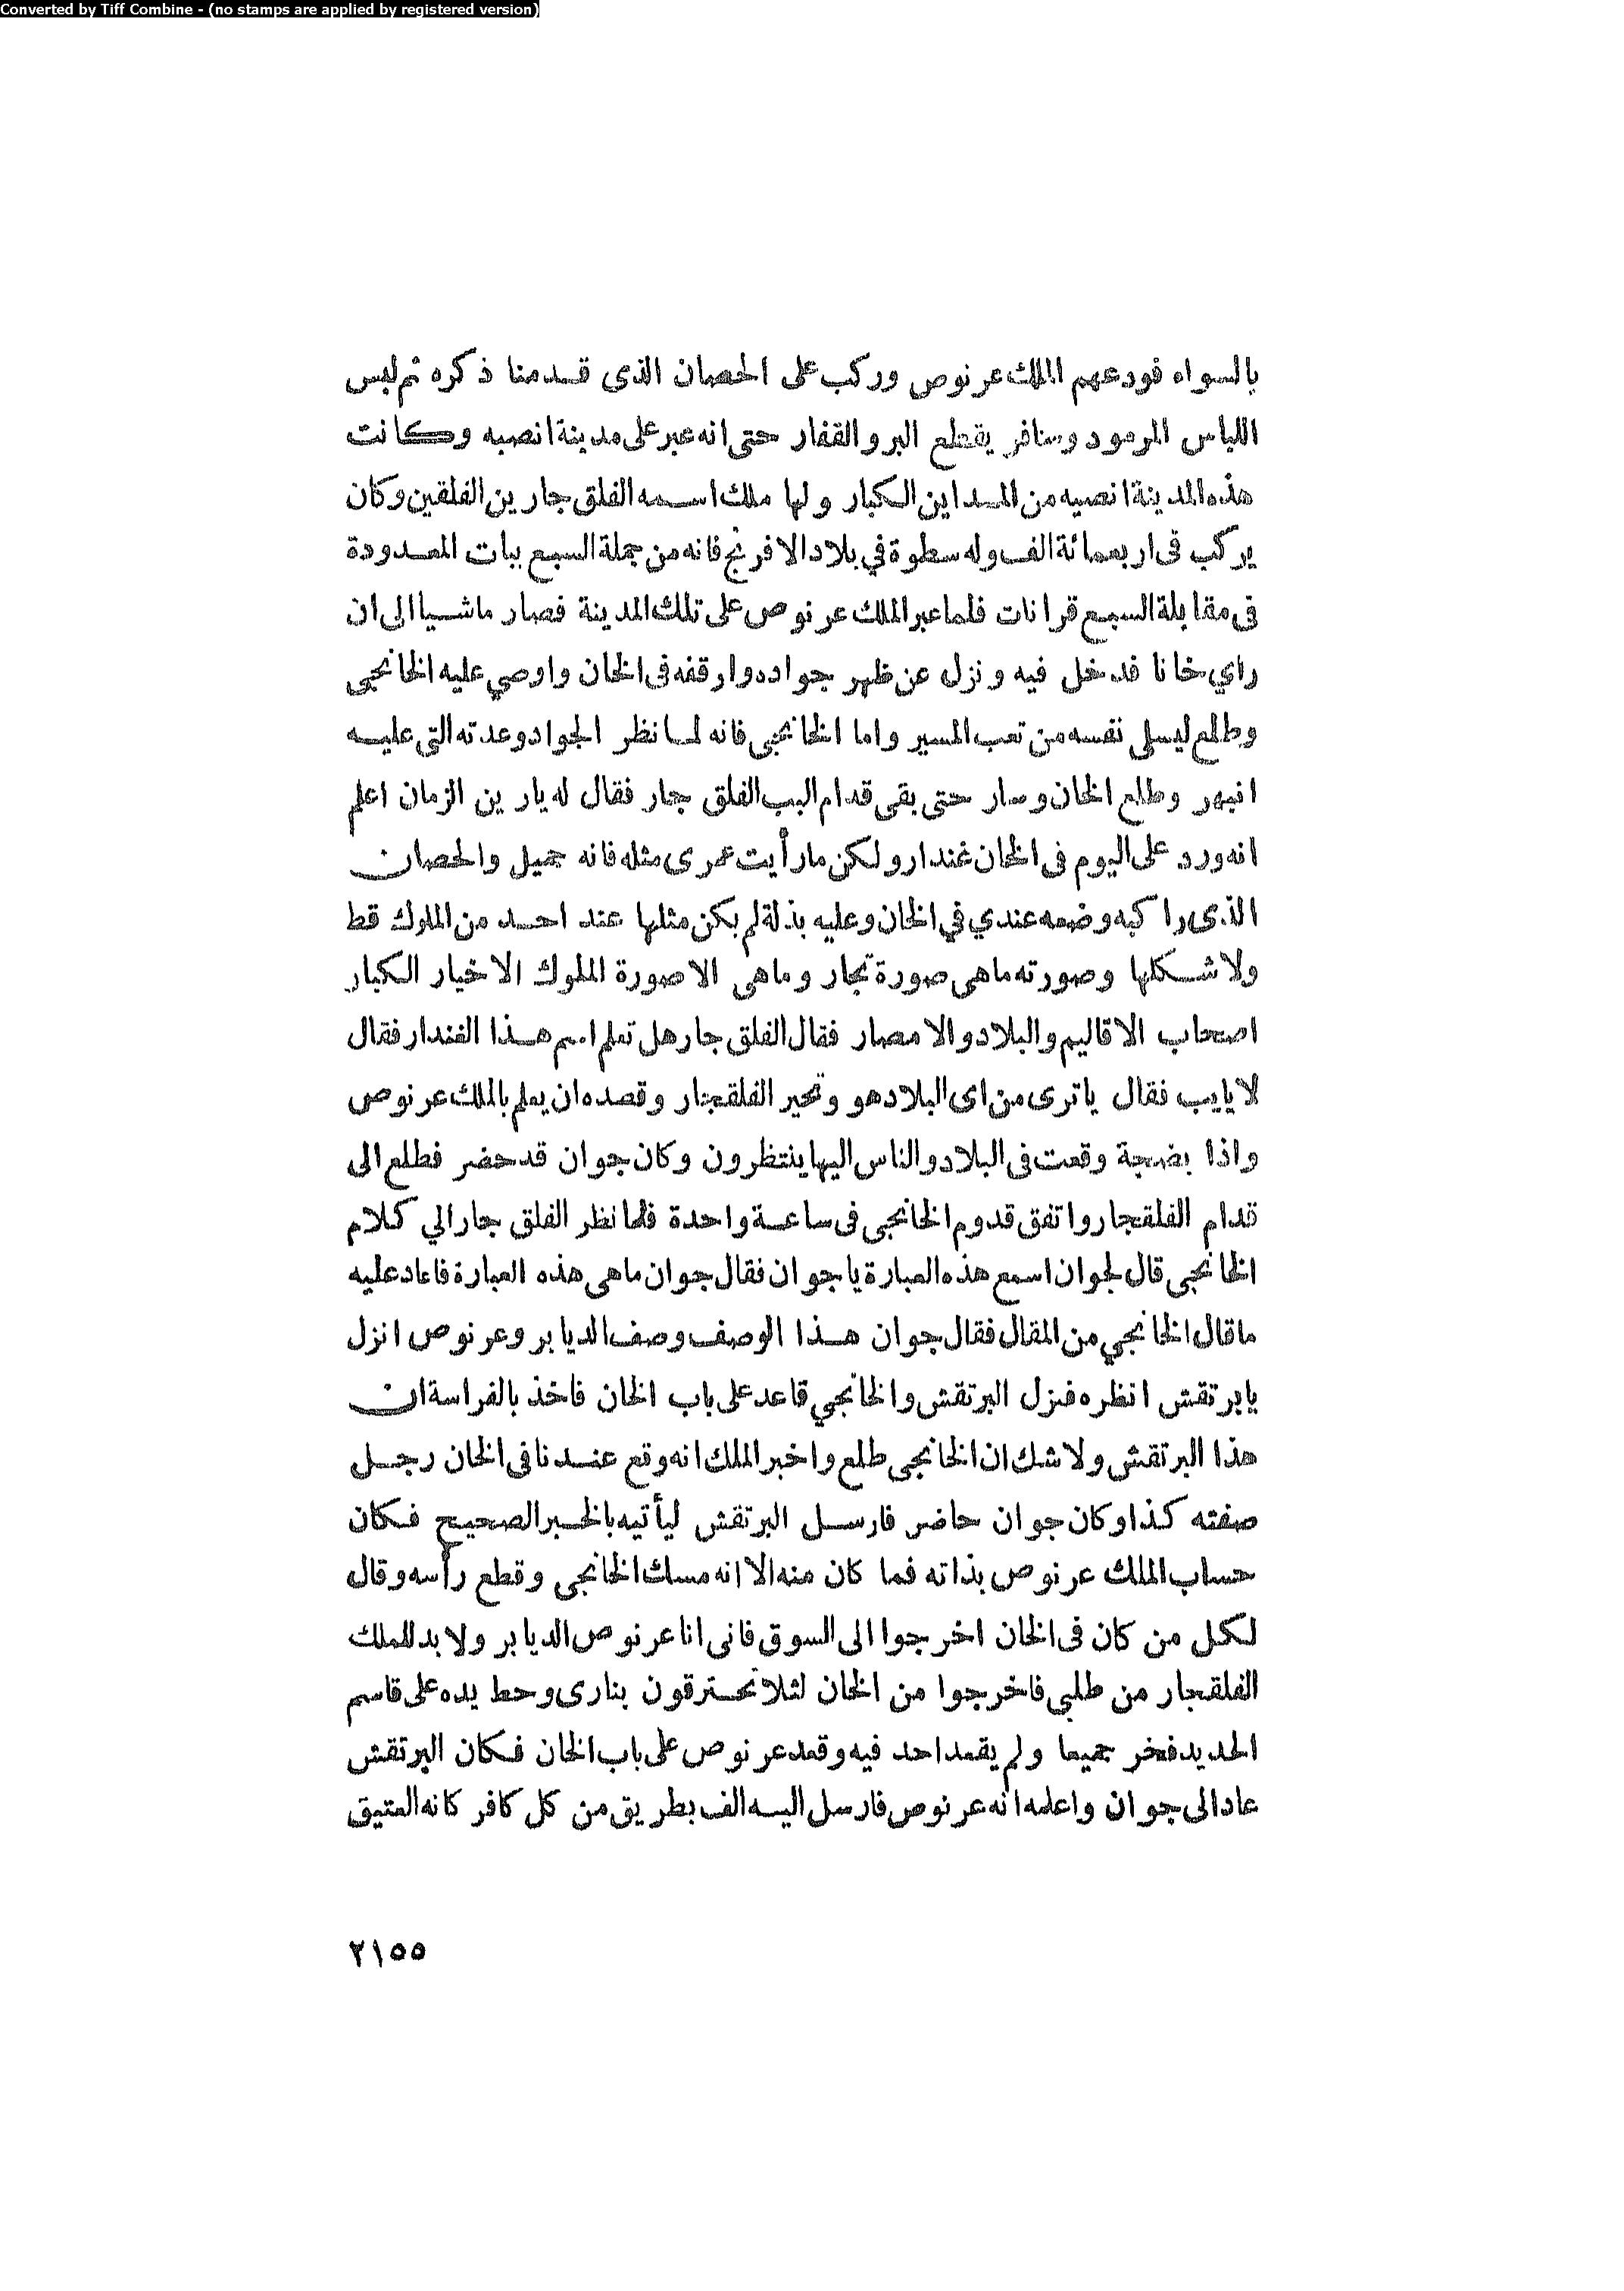 Converted by Tiff Combine - (no stamps are applied by registered version)
بالسواه فودعهم الملك عرنوص وركب على الحصان الذى قدمنا ذكره ثم لبس
اللباس المرمود وسافر يقطع البر والقفار حتى انه عبر على مدينة انصبه وكانت
هذه المدينة انصبه من المداين الكبار ولها ملك اسمه الفلق جار ين الفلقين وكان
يركب فى اربعمائة الف وله سطوة في بلاد الافرنج فانه من جملة السبع ببات المعدودة
فى مقابلة السبع قرانات فلما عبر الملك عرنوص على تلك المدينة فصار ماشيا الى ان
راي خانا فدخل فيه ونزل عن ظهر جواده وارقفه فى الخان واوصي عليه الخانجى
وطلع ليسلى نفسه من تعب المسير واما الخانجى فانه لما نظر الجواد وعدته التى عليه
انبهر وطلع الخان وسار حتى بقى قدام البب الفلق جار فقال له يارين الزمان اعلم
انه ورد على اليوم فى الخان غندار ولكن ما رأيت عمرى مثله فانه جميل والحصان
الذى راكبه وضعه عندي في الخان وعليه بذلة لم بكن مثلها عند احد من الملوك قط
ولا شكلها وصورته ماهى صورة تجار وماهى الا صورة الملوك الاخيار الكبار
اصحاب الاقاليم والبلاد والامصار فقال الفلق جار هل تعلم اسم هذا الغندار فقال
لا يابب فقال ياترى من اى البلاد هو وتحير الفلقجار وقصده ان يعلم بالملك عرنوص
واذا بضجة وقعت فى البلاد والناس اليها ينتظرون وكان جوان قد حضر فطلع الى
قدام الفلقجار واتفق قدوم الخانجى فى ساعة واحدة فلما نظر الفلق جار الي كلام
الخانجى قال لجوان اسمع هذه العبارة يا جوان فقال جوان ماهى هذه العبارة فاعاد عليه
ماقال الخانجي من المقال فقال جوان هذا الوصف وصف الديابر وعرنوص انزل
يابرتقش انظره فنزل البرتقش والخانجي قاعد على باب الخان فاخذ بالفراسة ان
هذا البرتقش ولا شك ان الخانجى طلع واخبر الملك انه وقع عندنا فى الخان رجل
صفته كذا وكان جوان حاضر فارسل البرتقش ليأتيه بالخبر الصحيح فكان
حساب الملك عرنوص بذاته فما كان منه الا انه مسك الخانجى وقطع رأسه وقال
لكل من كان فى الخان اخرجوا الى السوق فانى انا عرنوص الديابر ولا بد للملك
الفلقجار من طلبي فاخرجوا من الخان لئلا تحترقون بنارى وحط يده على قاسم
الحديد فخر جميعا ولم يقعد احد فيه وقعد عرنوص على باب الخان فكان البرتقش
عاد الى جوان واعلمه انه عرنوص فارسل اليه الف بطريق من كل كافر كانه العتيق
٢١٥٥